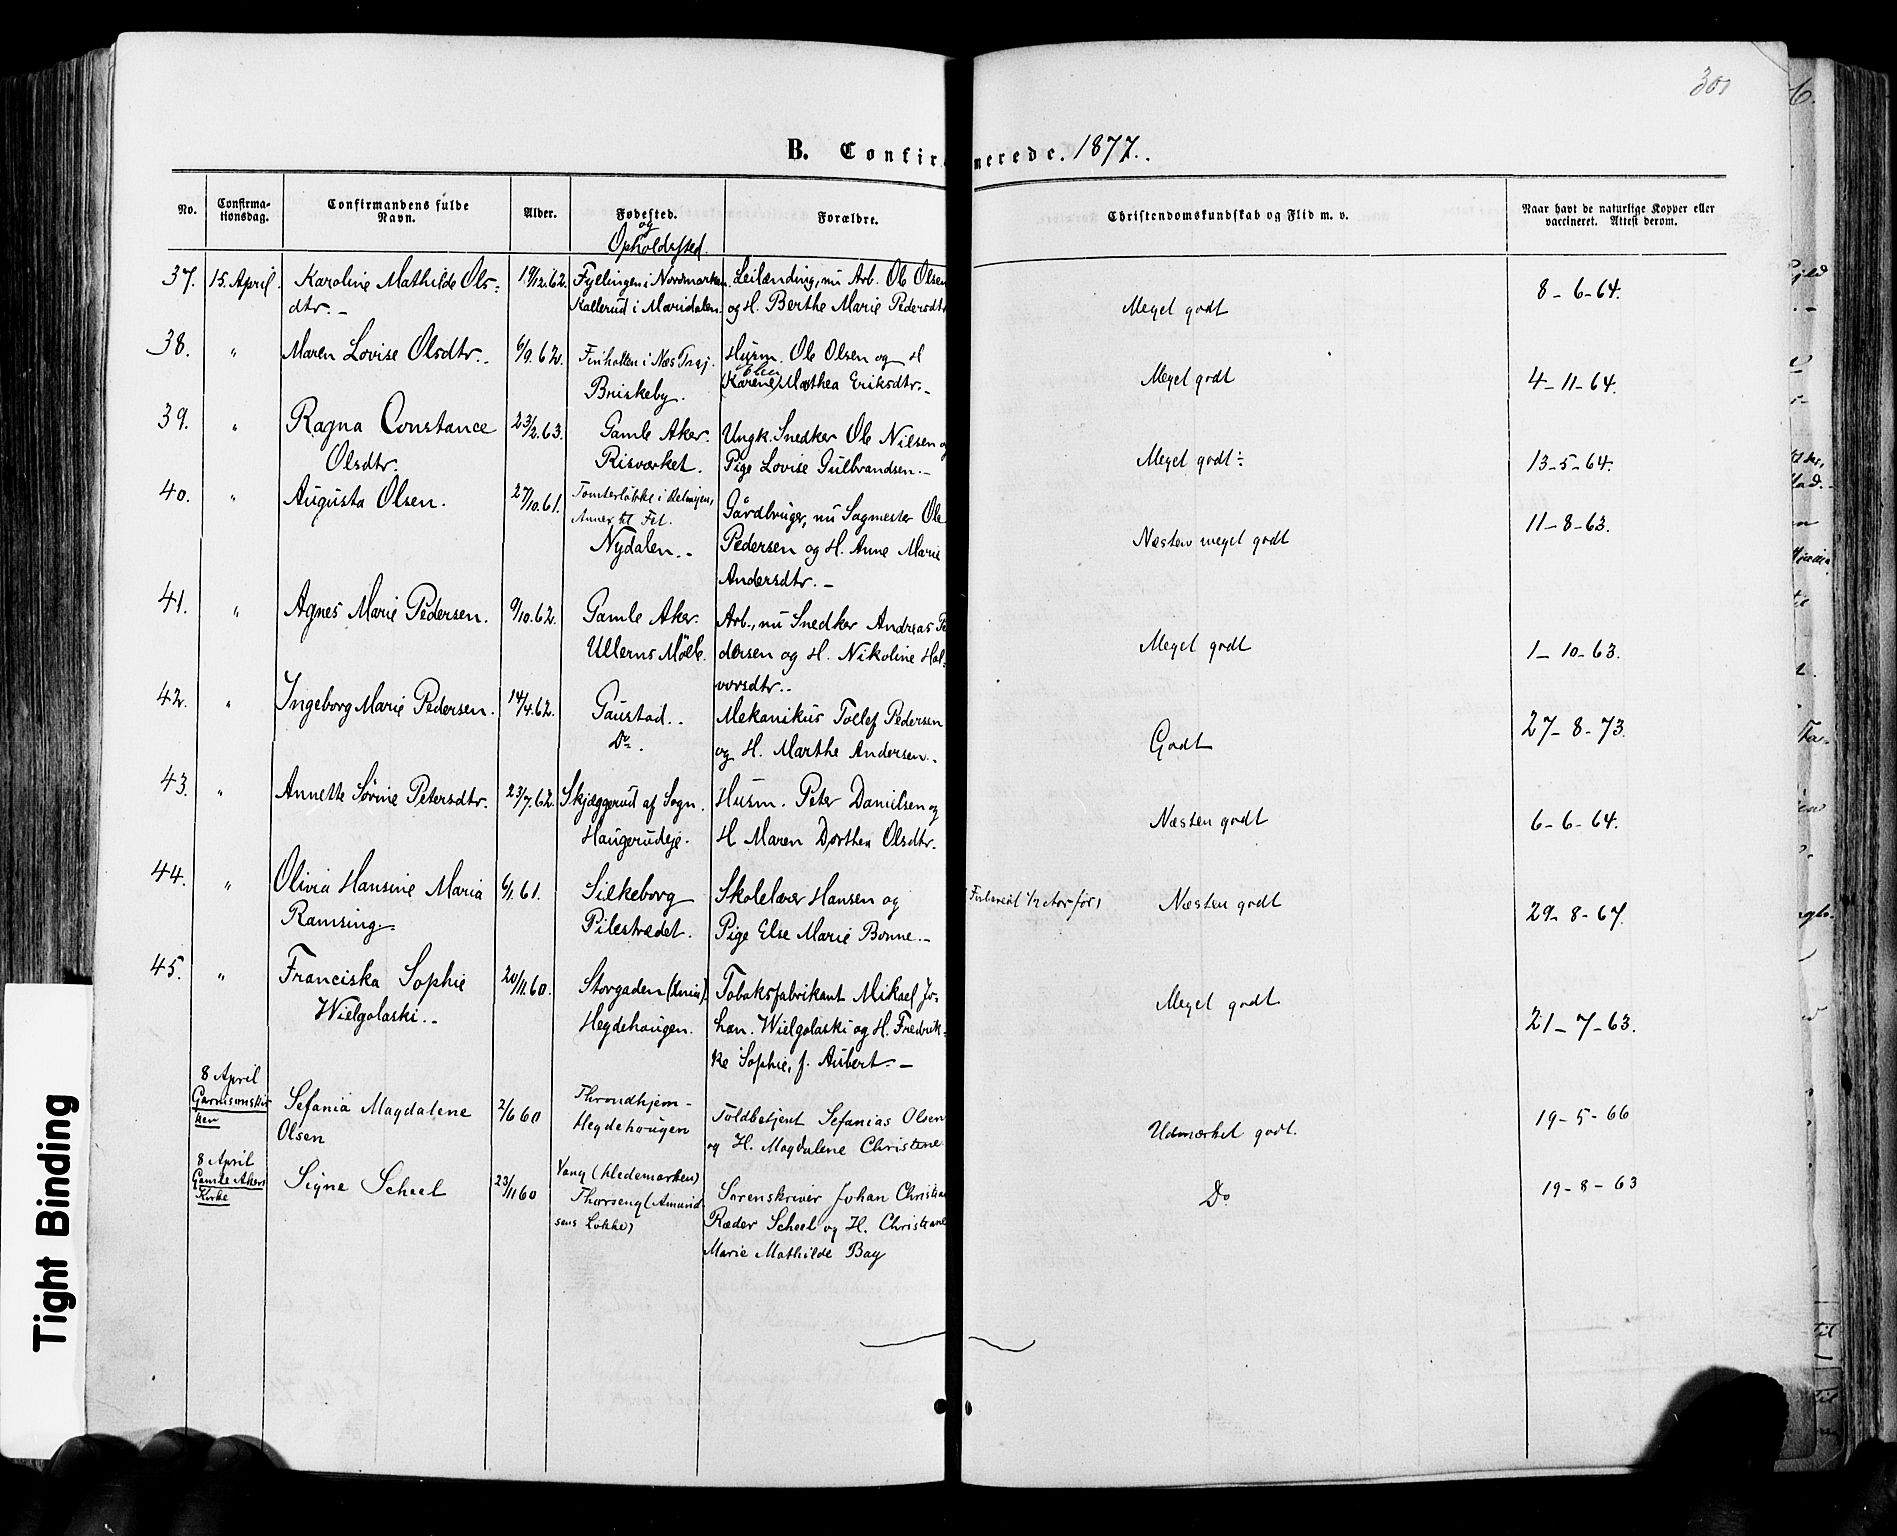 301
B. Confirmerede. 1877.
No.
Confirma-
tionsdag.
Confirmandens fulde
Navn.
Alder.
Fødested.
og
Opholdssted.
Forældre.
Christendomskundskab og Flid m. v.
Naar havt de naturlige Kopper eller
vaccineret. Attest derom.
37. 15. April. Karoline Mathilde Ols- 19/12.62. Fyllingen i Nordmarken. Leilænding, nu Arb. Ole Olsen
dtr. Kallerud i Maridalen. og H. Berthe Marie Pedersdtr
Meget godt 8-6-64.
38. " Maren Lovise Olsdtr. 6/9.62. Finholten i Næs Præj. Husm. Ole Olsen og H
Briskeby. (Karene) Mathea Eriksdtr.
Meget godt 4-11-64.
39. " Ragna Constance 23/2.63. Gamle Aker. Ungk. Snedker Ole Nilsen og
Olsdtr. Risværket. Pige Lovise Gulbrandsen.
Meget godt ÷ 13-5-64.
40. " Augusta Olsen. 27/10.61. Tomterløkke i
Annex til Fet. Gårdbruger, nu Sagmester Ole
Nydalen. Pedersen og H. Anne Marie
Andersdtr.
Næsten meget godt 11-8-63.
41. " Agnes Marie Pedersen. 9/10.62. Gamle Aker. Arb., nu Snedker Andreas Pe
Ullerns Mølle. dersen og H. Nikoline Hal-
vorsdtr.
Meget godt 1-10-63.
42. " Ingeborg Marie Pedersen. 14/4.62. Gaustad. Mekanikus Tollef Pedersen
Do. og H. Marthe Andersen.
Godt 27-8-73.
43. " Annette Sørine Petersdtr. 23/7.62. Skjæggerud af Sogn. Husm. Peter Danielsen og
Haugerudeje. H Maren Dorthea Olsdtr.
Næsten godt 6-6-64.
44. " Olivia Hansine Maria 6/1.61. Silkeborg Skolelærer Hansen og
Ramsing. Pilestrædet. Pige Else Marie Bonne.
Næsten godt 29-8-67.
45. " Franciska Sophie 20/11.60. Storgaden Tobaksfabrikant Mikael Jo-
Wielgolaski. Hegdehaugen. han. Wielgolaski og H. Fredrik-
ke Sophie, f. Aubert.
Meget godt 21-7-63.
8 April
Garnisonskir
ken
Sefania Magdalene 2/6 60 Throndhjem Toldbetjent Sefanias Olsen
Olsen Hegdehougen og H. Magdalene Christine
Udmærket godt. 19-5-66
8 April
Gamle Akers
Kirke
Signe Scheel 23/11 60 Vang (Hedemarken) Sorenskriver Johan Christian
Thorseng (Amund- Ræder Scheel og H. Christiane
sens Løkke) Marie Mathilde Bay
Do 19-8-63
Tight Binding